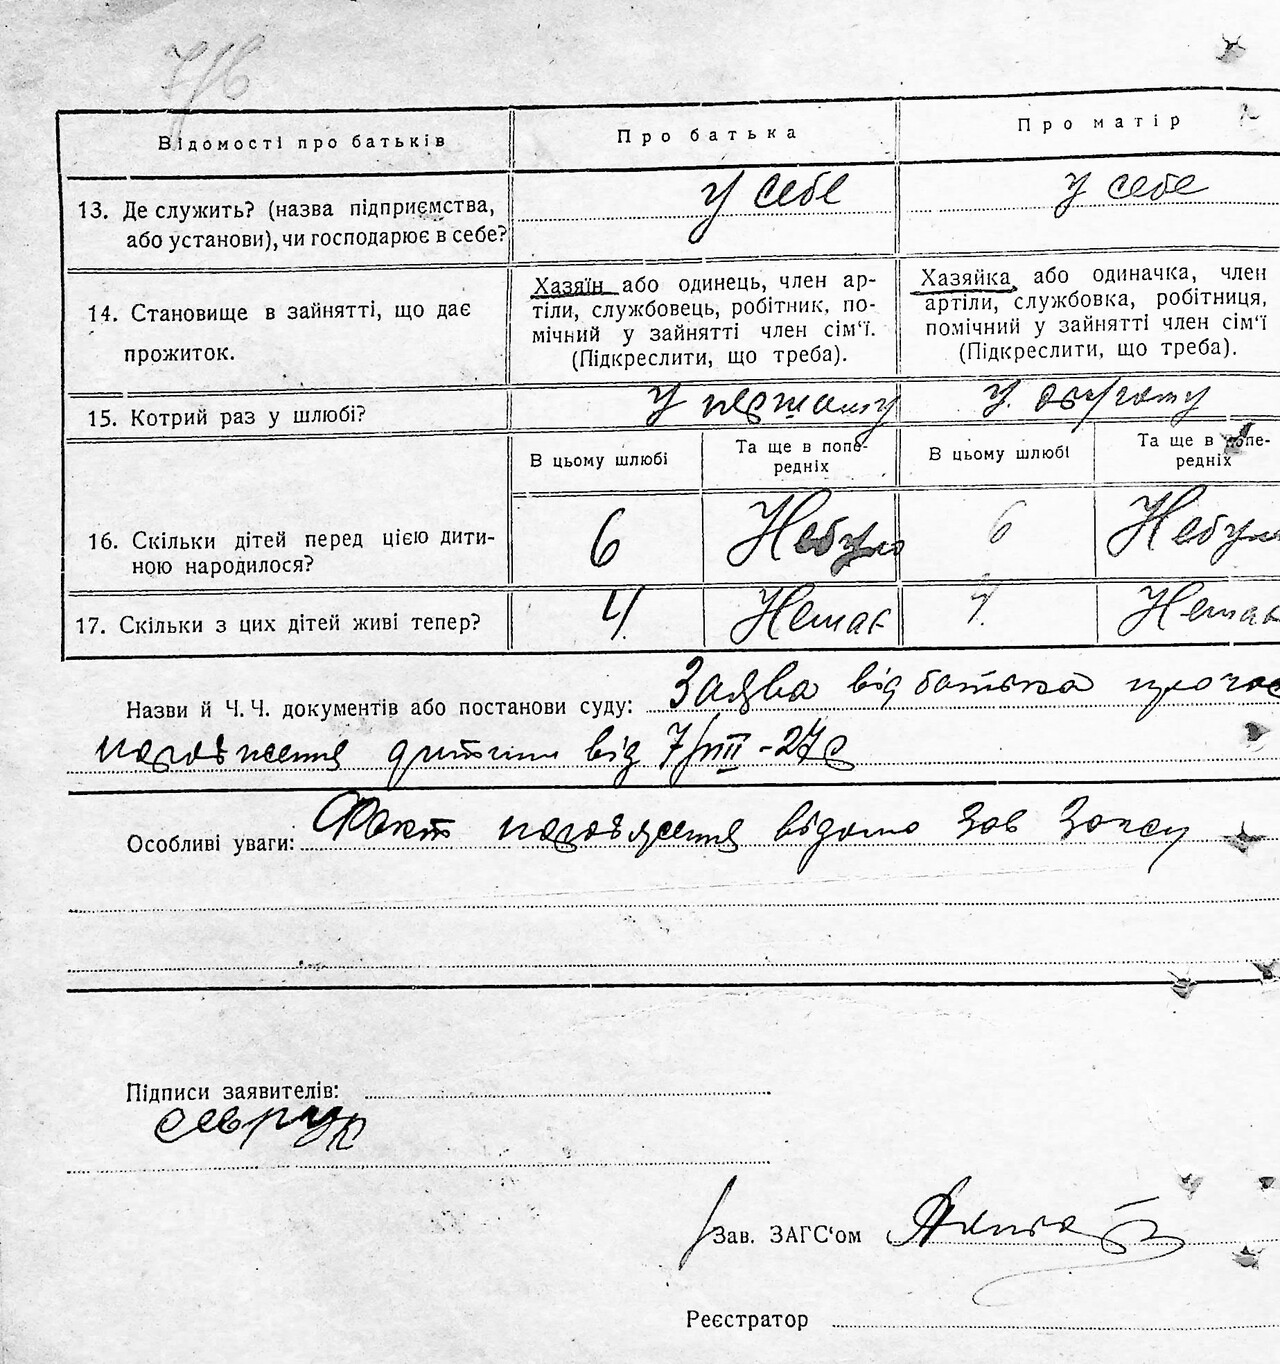 7/6
Відомості про батьків
Про батька
Про матір
13. Де служить? (назва підприємства,
або установи), чи господарює в себе?
у себе
у себе
14. Становище в зайнятті, що дає
прожиток.
Хазяїн або одинець, член ар-
тіли, службовець, робітник, по-
мічний у зайнятті член сім'ї.
(Підкреслити, що треба).
Хазяйка або одиначка, член
артіли, службовка, робітниця,
помічний у зайнятті член сім'ї
(Підкреслити, що треба).
15. Котрий раз у шлюбі?
У першому
У другому
В цьому шлюбі
Та ще в попе-
редніх
В цьому шлюбі
Та ще в попе-
редніх
16. Скільки дітей перед цією дити-
ною народилося?
6
Небуло
6
Небуло
17. Скільки з цих дітей живі тепер?
4
Немає
4
Немає
Назви й Ч. Ч. документів або постанови суду: Заява від батька про час
народження дитини від 7/III-27
Особливі уваги: Факт народження відомо Зав Загсу
Підписи заявителів:
Зав. ЗАГС'ом
Реєстратор